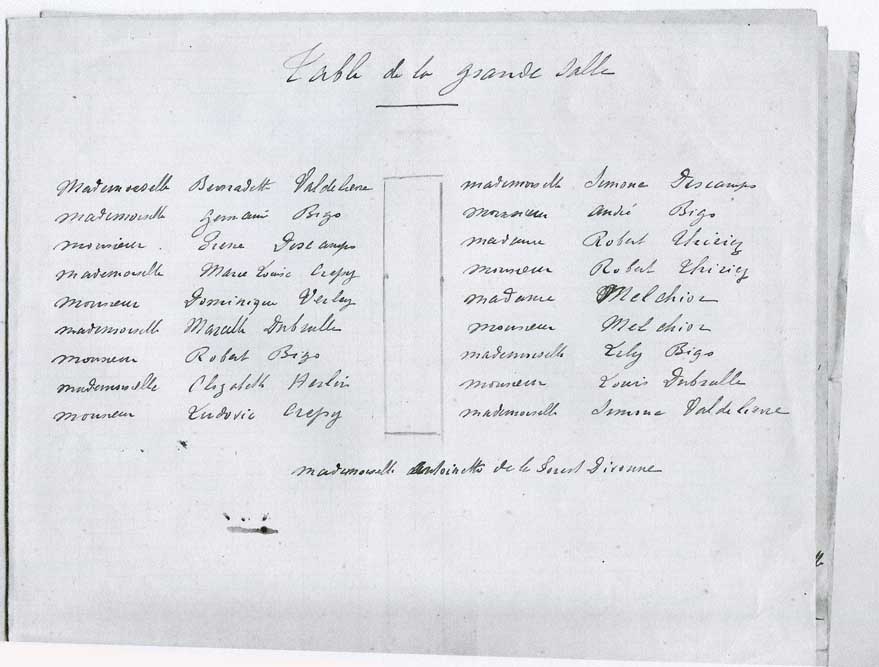 Table de la grande Salle
mademoiselle Bernadette Valdelievre
mademoiselle Germaine Bigo
monsieur Descamps
mademoiselle Marie Louise Crepy
monsieur Dominique Verley
mademoiselle Marcelle Dubrulle
monsieur Robert Bigo
mademoiselle Elizabeth Herlin
monsieur Ludovic Crepy
mademoiselle Simone Descamps
monsieur andré Bigo
madame Robert Thiriez
monsieur Robert Thiriez
madame Melchior
monsieur Melchior
mademoiselle Lily Bigo
monsieur Louis Dubrulle
mademoiselle Simone Valdelievre
mademoiselle Antoinette de la Forest Divonne